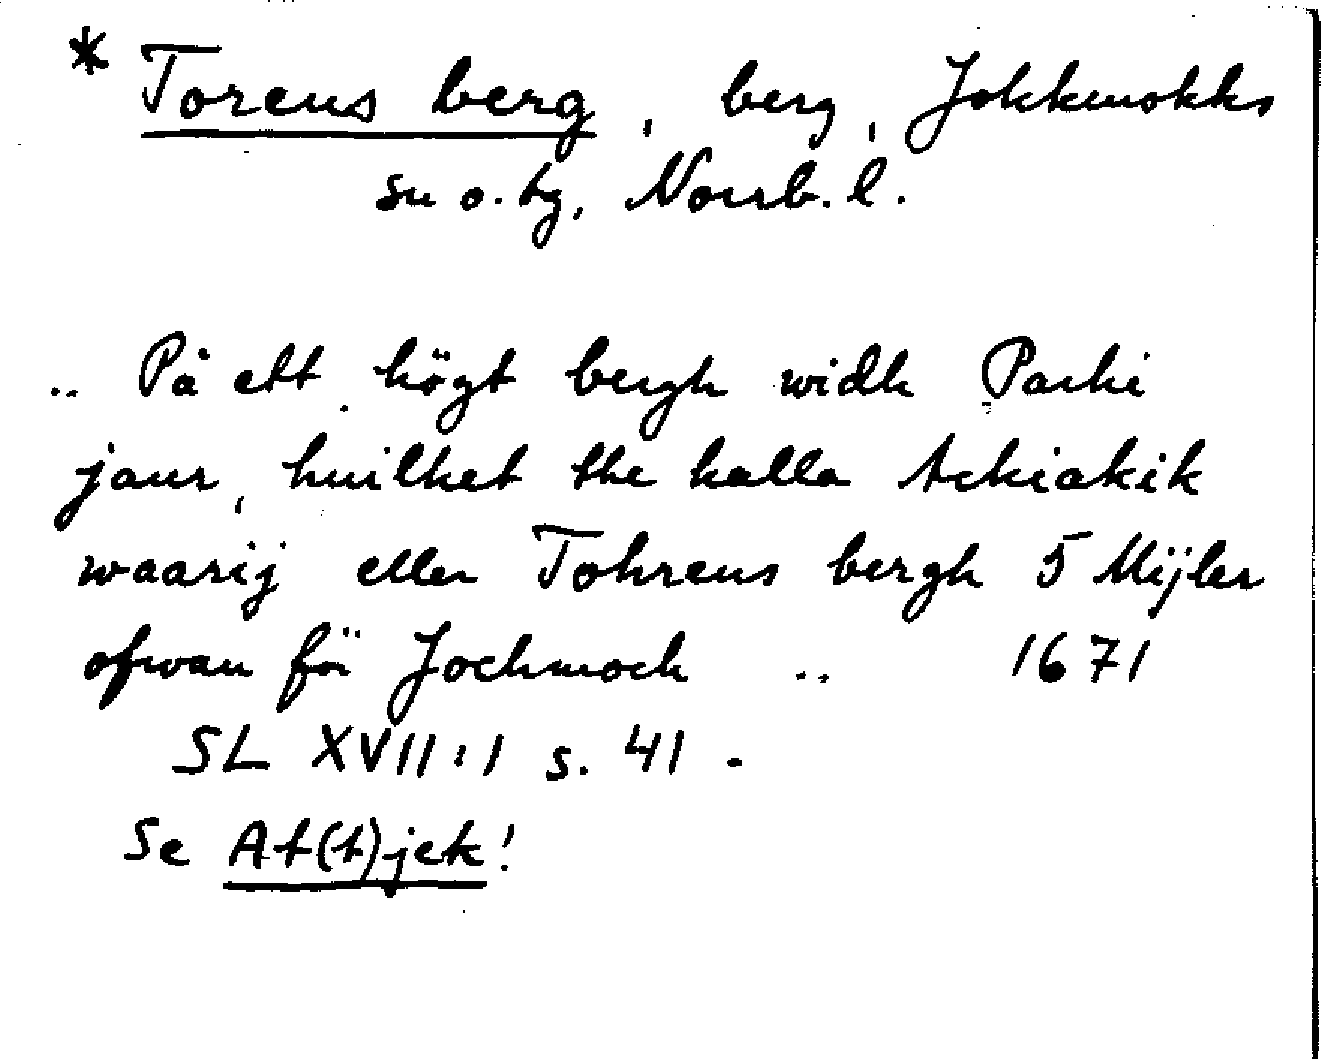 * Torens berg, berg, Jokkmokks
sn o. tg, Norrb. l.
.. På ett högt bergh widh Parki
jaur, huilket the kalla Atkiakik
waarij eller Tohrens bergh 5 Mijler
ofwan för Jochmoch .. 1671
SL XVII:1 s. 41 .
Se At(t)jek!